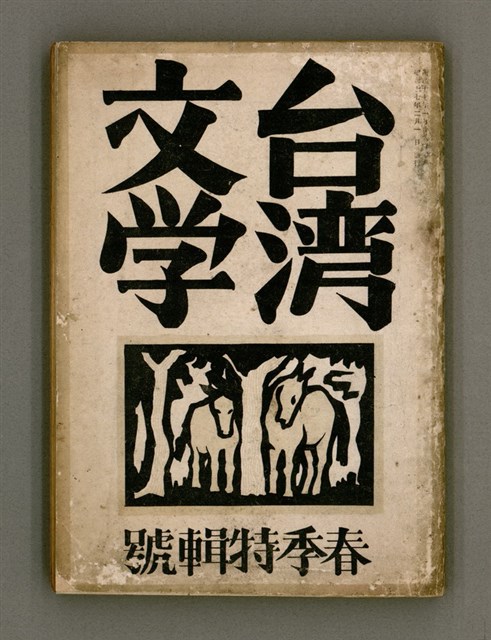 台湾
文学
春季特輯號